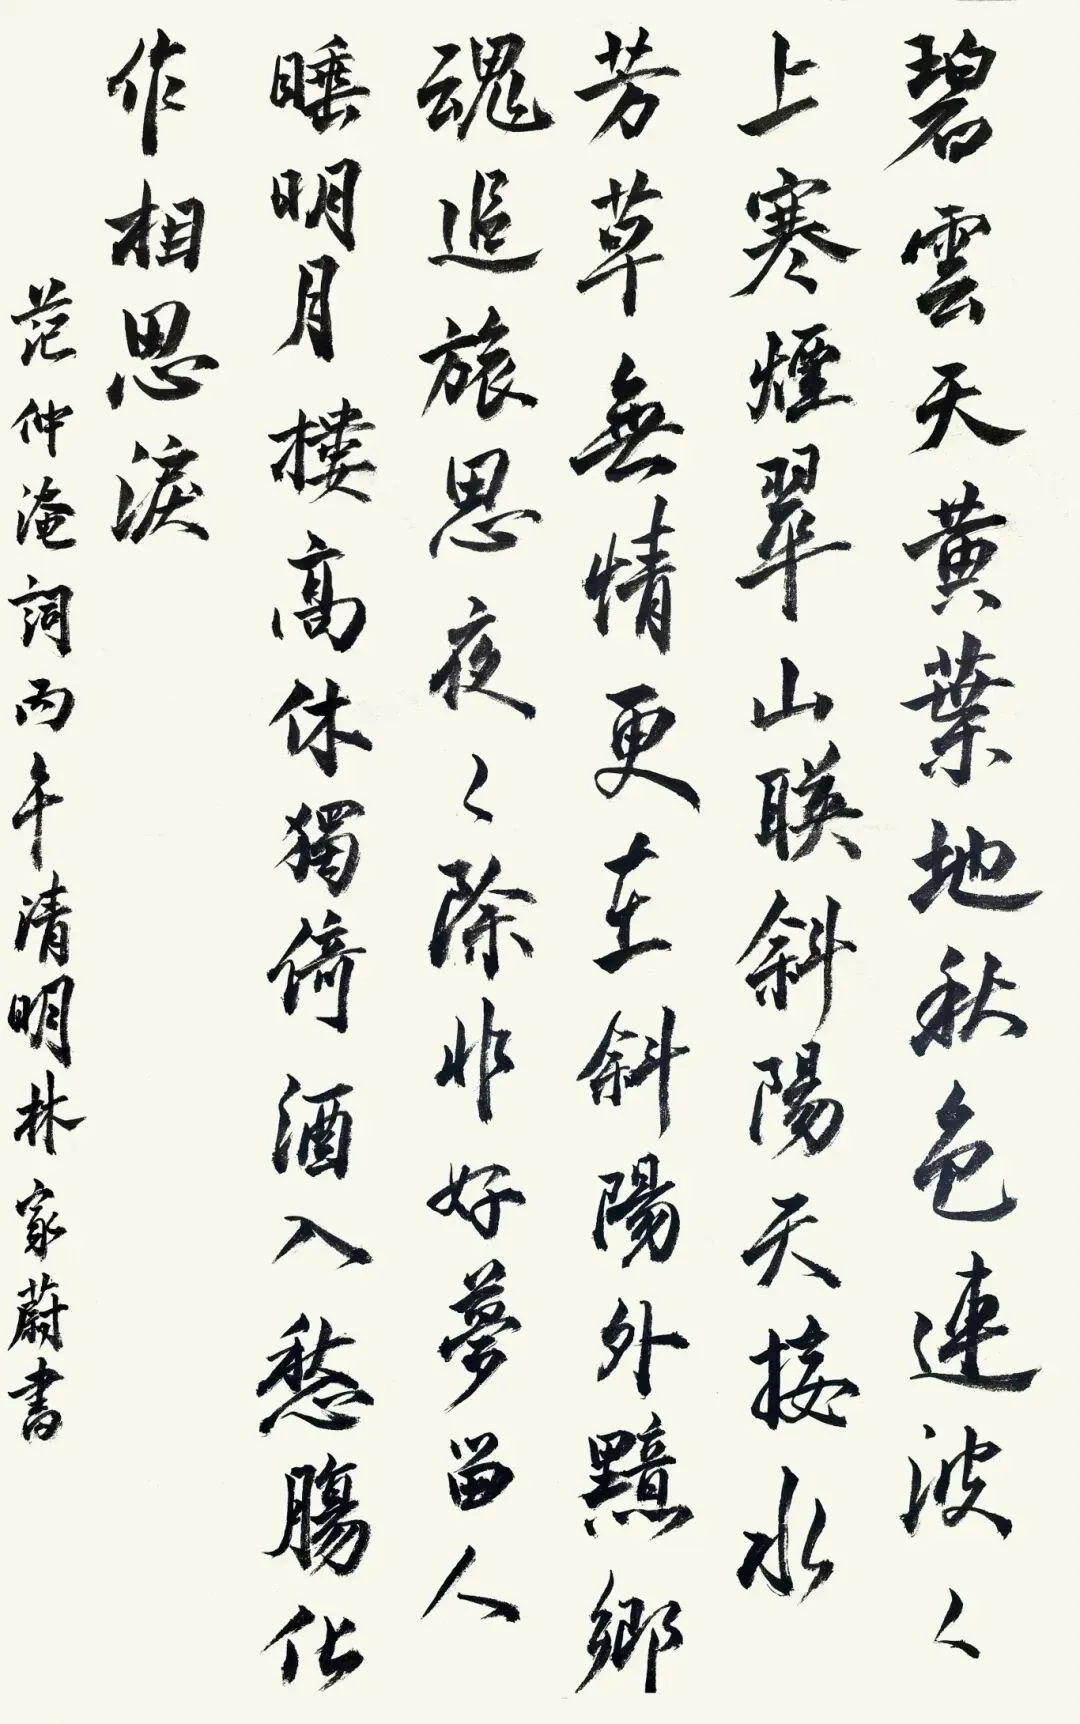 碧雲天黄葉地秋色連波〻
上寒煙翠山映斜陽天接水
芳草無情更在斜陽外黯鄉
魂追旅思夜〻除非好夢留人
睡明月樓高休獨倚酒入愁腸化
作相思淚
范仲淹詞丙午清明林家蔚書